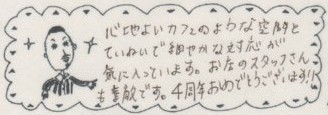 心地よいカフェのような空間と
ていねいで細やかな対応が
気に入っています。お店のスタッフさん
も素敵です。4周年おめでとうございます!!